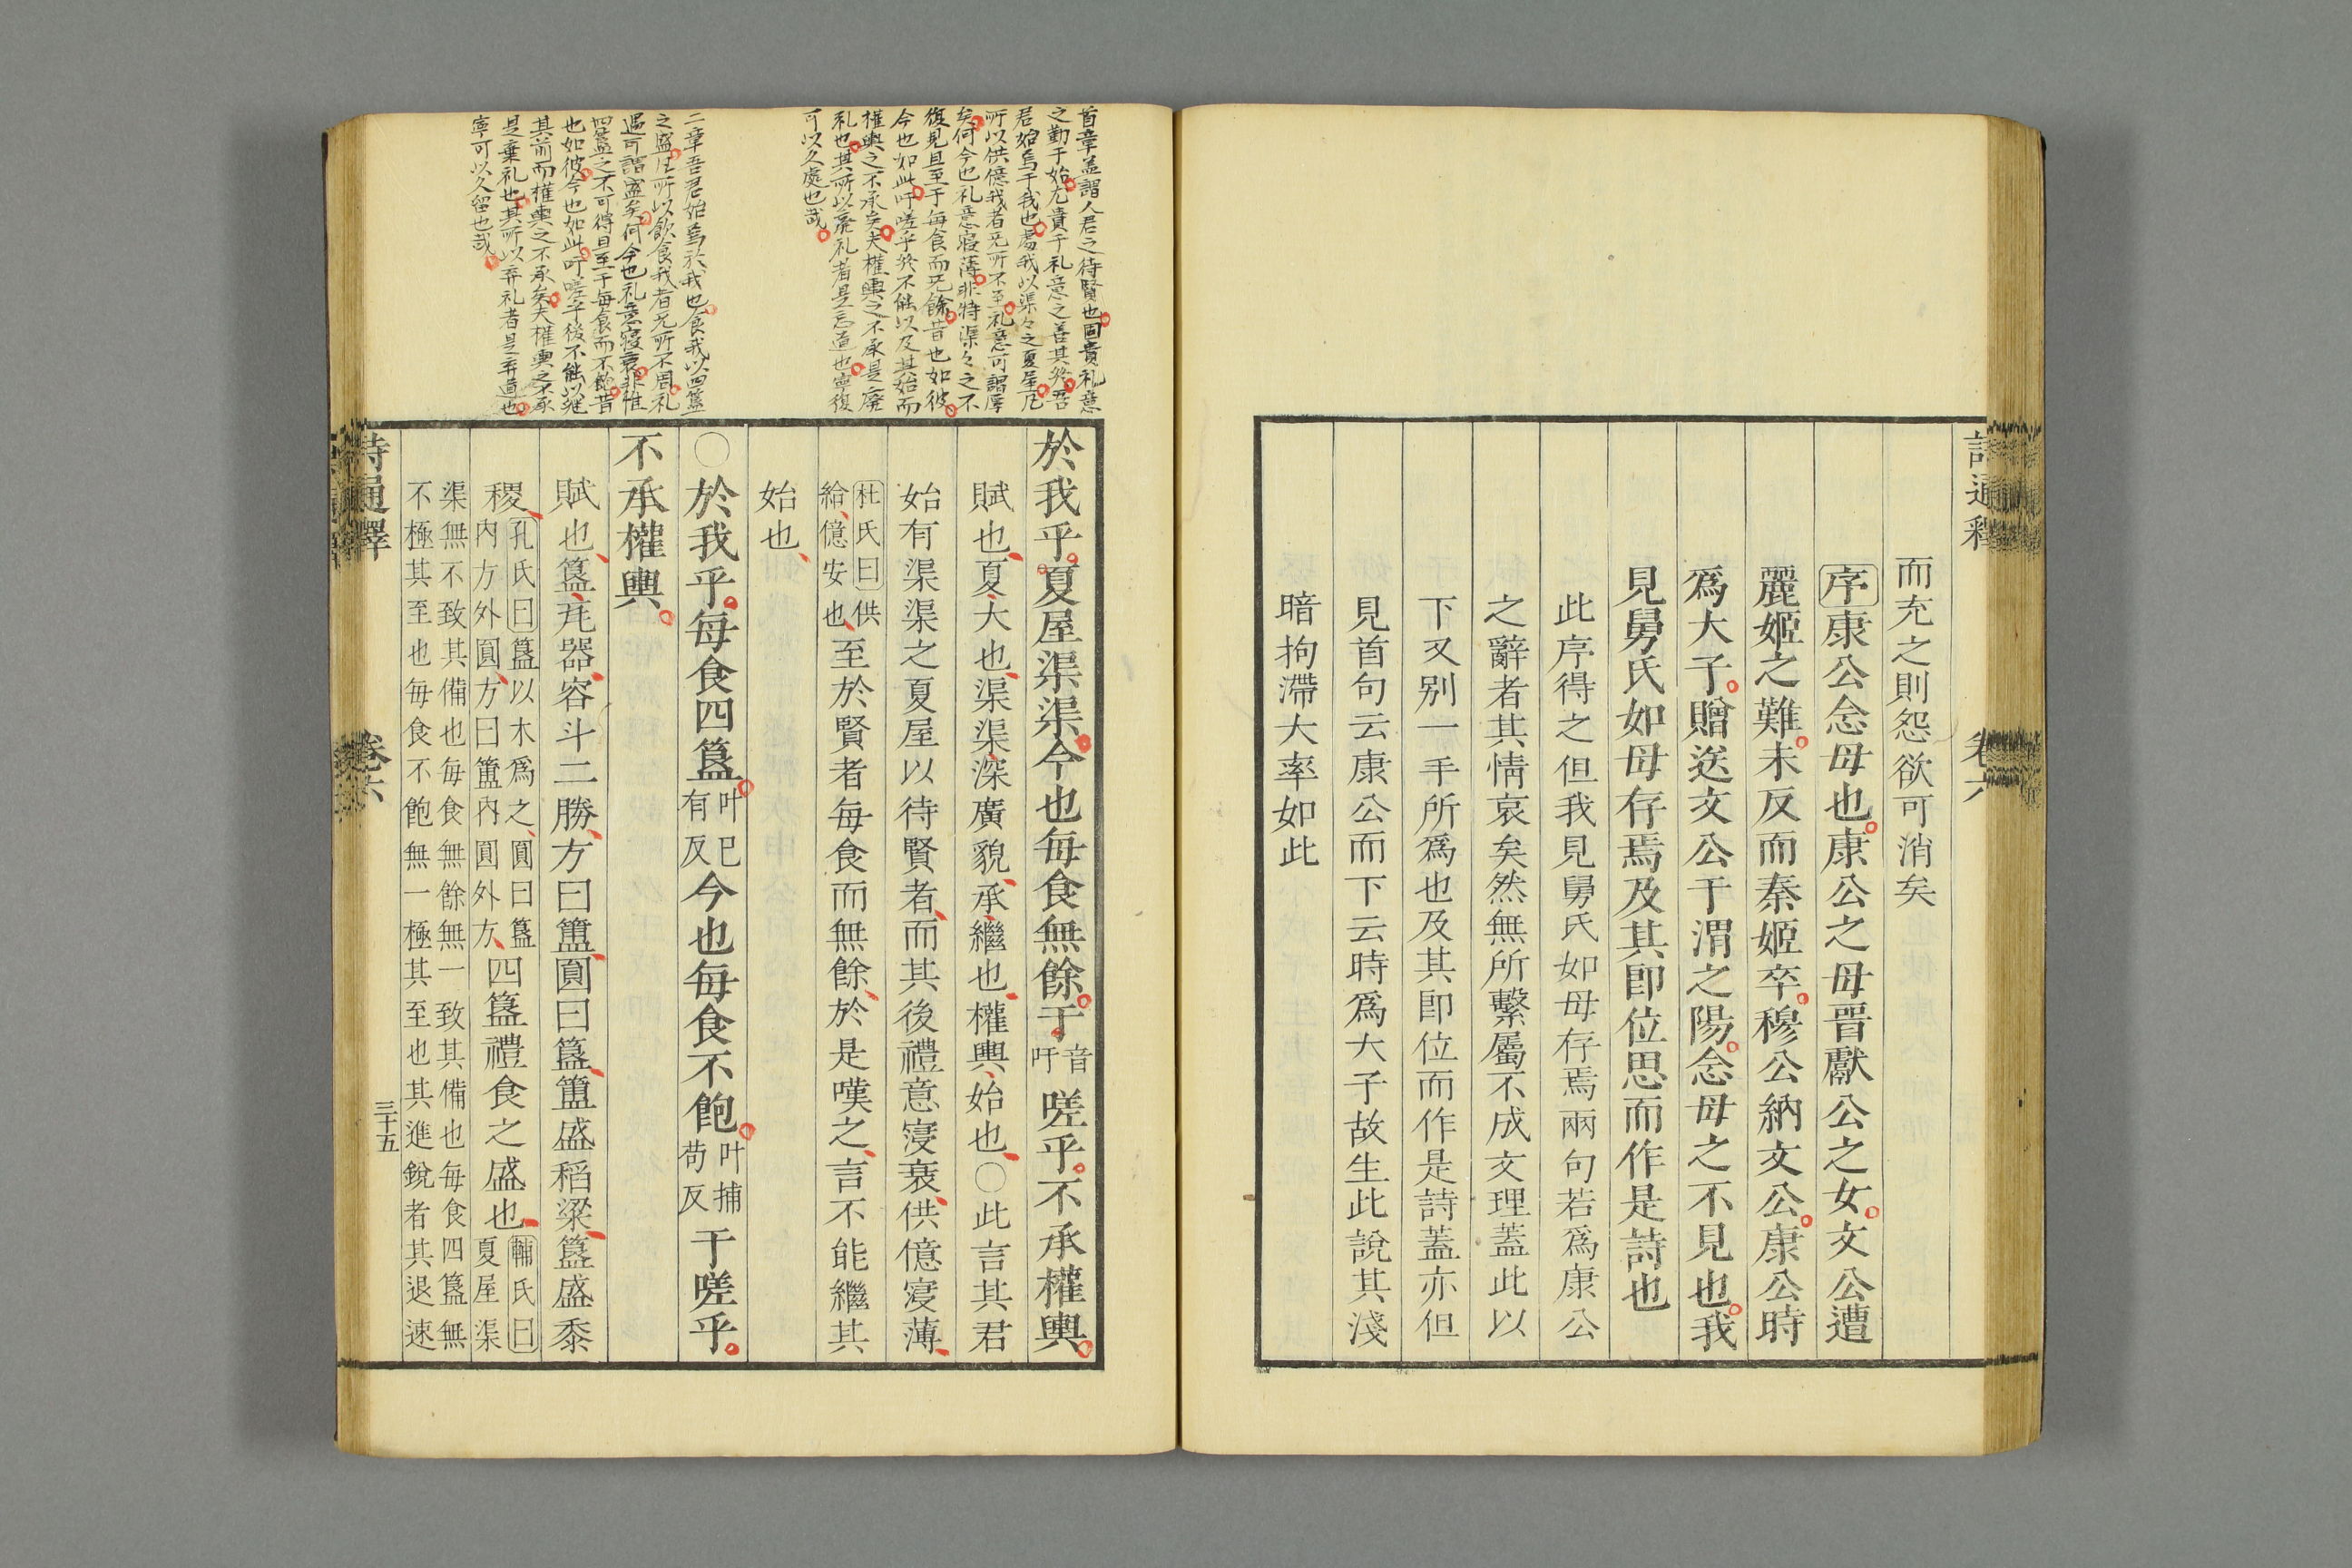 詩通釋
卷六
而充之則怨欲可消矣
序康公念母也康公之母晋獻公之女文公遭
麗姬之難未反而秦姬卒穆公納文公康公時
爲大子贈送文公于渭之陽念母之不見也我
見舅氏如母存焉及其卽位思而作是詩也
此序得之但我見舅氏如母存焉兩句若爲康公
之辭者其情哀矣然無所繫屬不成文理蓋此以
下又别一手所爲也及其卽位而作是詩蓋亦但
見首句云康公而下云時爲大子故生此說其淺
暗拘滯大率如此
首章盖謂人君之待賢也固貴礼意
之勤于始尤貴于礼意之善其終吾
君始焉于我也處我以渠々之夏屋凡
所以供億我者无所不至礼意可謂厚
矣何今也礼意寢薄非特渠々之不
復見且至于每食而无餘昔也如彼
今也如此吁嗟乎終不能以及其始而
權輿之不承矣夫權輿之不承是廢
礼也其所以棄礼者是忘道也寧復
可以久處也哉
二章吾君始焉於我也食我以四簋
之盛凡所以飲食我者无所不周礼
遇可謂盛矣何今也礼意寢衰非惟
四簋之不可得且至于每食而不飽昔
也如彼今也如此吁嗟乎後不能以継
其前而權輿之不承矣夫權輿之不承
是棄礼也其所以弃礼者是弃道也
寧可以久留也哉
於我乎夏屋渠渠今也每食無餘于音吁嗟乎不承權輿
賦也夏大也渠渠深廣貌承繼也權輿始也〇此言其君
始有渠渠之夏屋以待賢者而其後禮意寖衰供億寖薄
杜氏曰供給億安也至於賢者每食而無餘於是嘆之言不能繼其
始也
〇於我乎每食四簋叶巳有反今也每食不飽叶捕苟反于嗟乎
不承權輿
賦也簋瓦器容斗二勝方曰簠圓曰簋簠盛稻梁簋盛黍
稷孔氏曰簋以木爲之圓曰簋內方外圓方曰簠內圓外方四簋禮食之盛也輔氏曰夏屋渠
渠無不致其備也每食無餘無一致其備也每食四簋無
不極其至也每食不飽無一極其至也其進銳者其退速
詩通釋
卷六
三十五